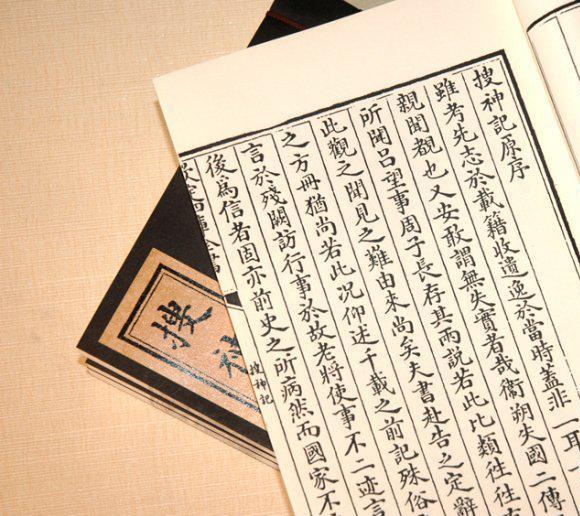 搜神記原序
雖考先志於載籍收遺逸於當時蓋非一耳
親聞覩也又安敢謂無失實者哉衞朔失國二傳
所聞吕望事周子長存其兩說若此比類徃徃
此觀之聞見之難由来尚矣夫書赴告之定辭
之方冊猶尚若此况仰述千載之前記殊俗
言於殘闕訪行事於故老將使事不二迹言
後爲信者固亦前史之所病然而國家不
搜神記
全書
搜神